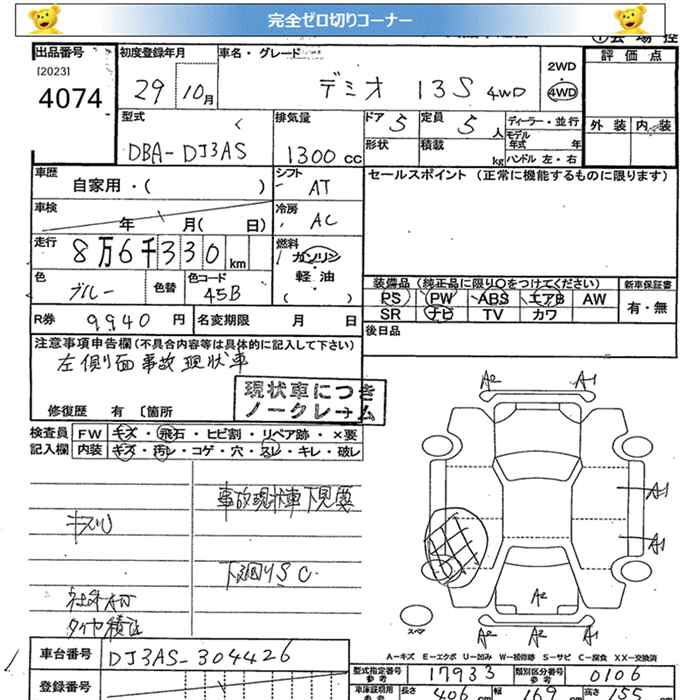 完全ゼロ切りコーナー
出品番号
[2023]
4074
初度登録年月
29 10月
車名・グレード
デミオ 13S 4WD
2WD
・
4WD
評価点
外装 内装
型式
DBA-DJ3AS
排気量
1300 CC
ドア 5
定員 5 人
形状
積載 kg
ディーラー・並行
モデル年式 年
ハンドル 左・右
車歴
自家用・( )
シフト
AT
セールスポイント (正常に機能するものに限ります)
車検
年 月( 日)
冷房
AC
走行
8万6千330 km
燃料
ガソリン
・
軽油
( )
色
ブルー
色替
色コード
45B
装備品 (純正品に限り○をつけてください)
PS PW ABS エアB AW
SR ナビ TV カワ
新車保証書
有・無
R券 9940 円
名変期限 月 日
後日品
注意事項申告欄 (不具合内容等は具体的に記入して下さい)
左側面事故現状車
現状車につき
ノークレーム
修復歴 有 〔箇所
検査員
記入欄
FW キズ・飛石・ヒビ割・リペア跡・×要
内装 キズ・汚レ・コゲ・穴・スレ・キレ・破レ
事故現状車下見要
キズ
下廻りS C
タイヤ積込
A2 A1
A1
A1
A2
A2 A2 A1
スペア
A-キズ E-エクボ U-凹み W-補修跡 S-サビ C-腐食 XX-交換済
車台番号
DJ3AS-304426
登録番号
型式指定番号
参考
17933
類別区分番号
参考
0106
車庫証明用
参考
長さ 406 cm 幅 169 cm 高さ 155 cm